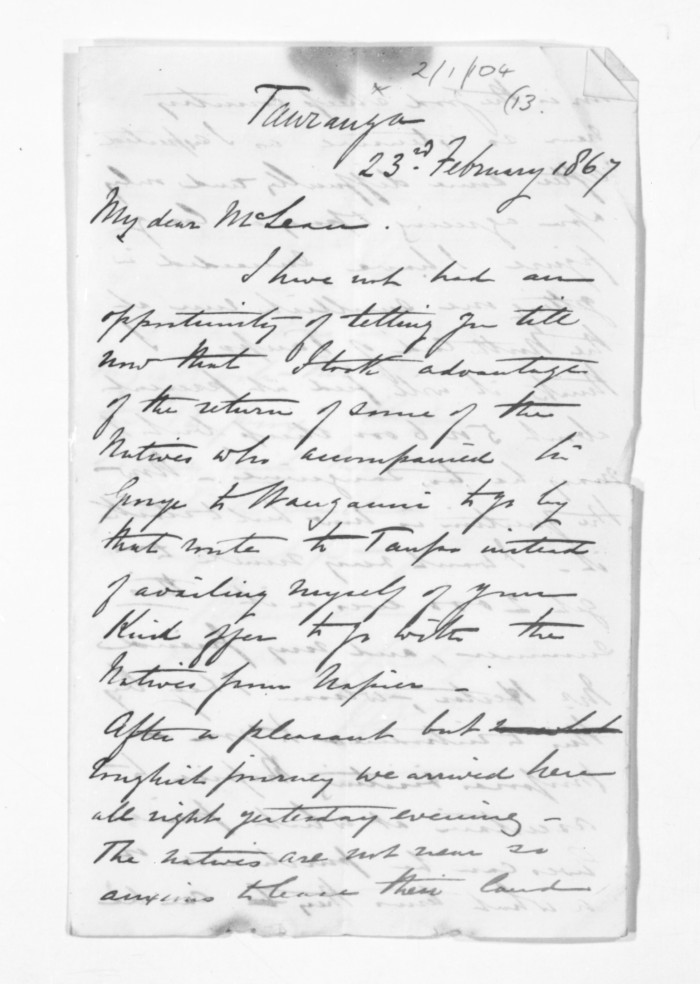 2/1/104
(13.
Tauranga
23rd. February 1867
My dear McLean.
I have not had an
opportunity of telling you till
now that I took advantage
of the return of some of the
Natives who accompanied Sir
George to Wanganui to go by
that route to Taupo instead
of availing myself of your
Kind offer to go with the
Natives from Napier -
After a pleasant but
roughish journey we arrived here
all right yesterday evening -
The natives are not near so
anxious to lease their land